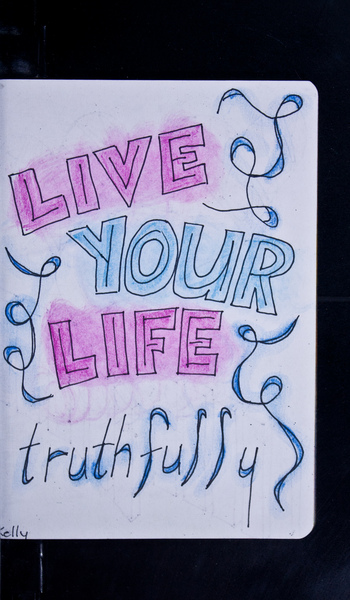 LIVE
YOUR
LIFE
truthfully
Kelly